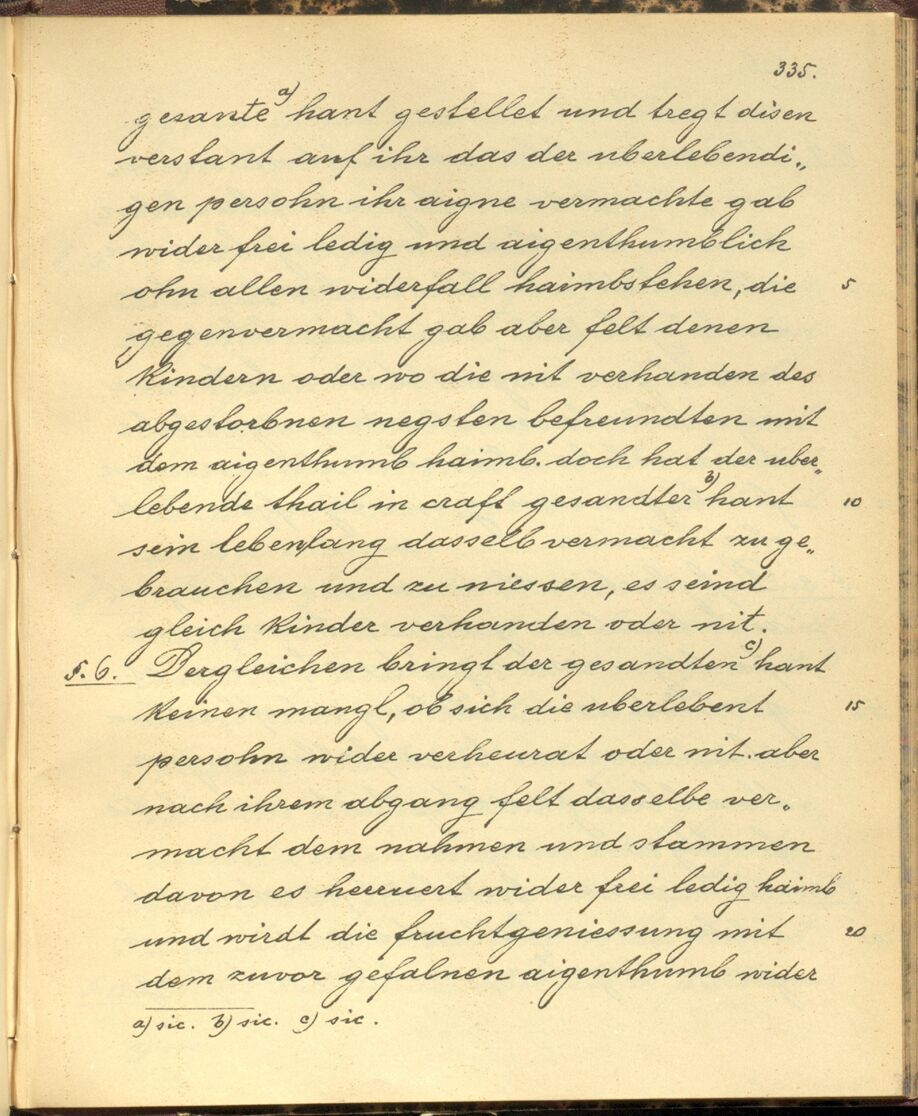 335.
gesante a) hant gestellet und tregt disen
verstant auf ihr das der uberlebendi„
gen persohn ihr aigne vermachte gab
wider frei ledig und aigenthumblich
ohn allen widerfall haimbstehen, die 5
gegenvermacht gab aber felt denen
kindern oder wo die nit verhanden des
abgestorbnen negsten befreundten mit
dem aigenthumb haimb. doch hat der uber„
lebende thail in craft gesandter b) hant 10
sein lebenlang dasselb vermacht zu ge„
brauchen und zu niessen, es seind
gleich kinder verhanden oder nit.
§. 6. Dergleichen bringt der gesandten c) hant
keinen mangl, ob sich die uberlebent 15
persohn wider verheurat oder nit. aber
nach ihrem abgang felt dasselbe ver„
macht dem nahmen und stammen
davon es herruert wider frei ledig haimb
und wirdt die fruchtgeniessung mit 20
dem zuvor gefalnen aigenthumb wider
a) sic. b) sic. c) sic.